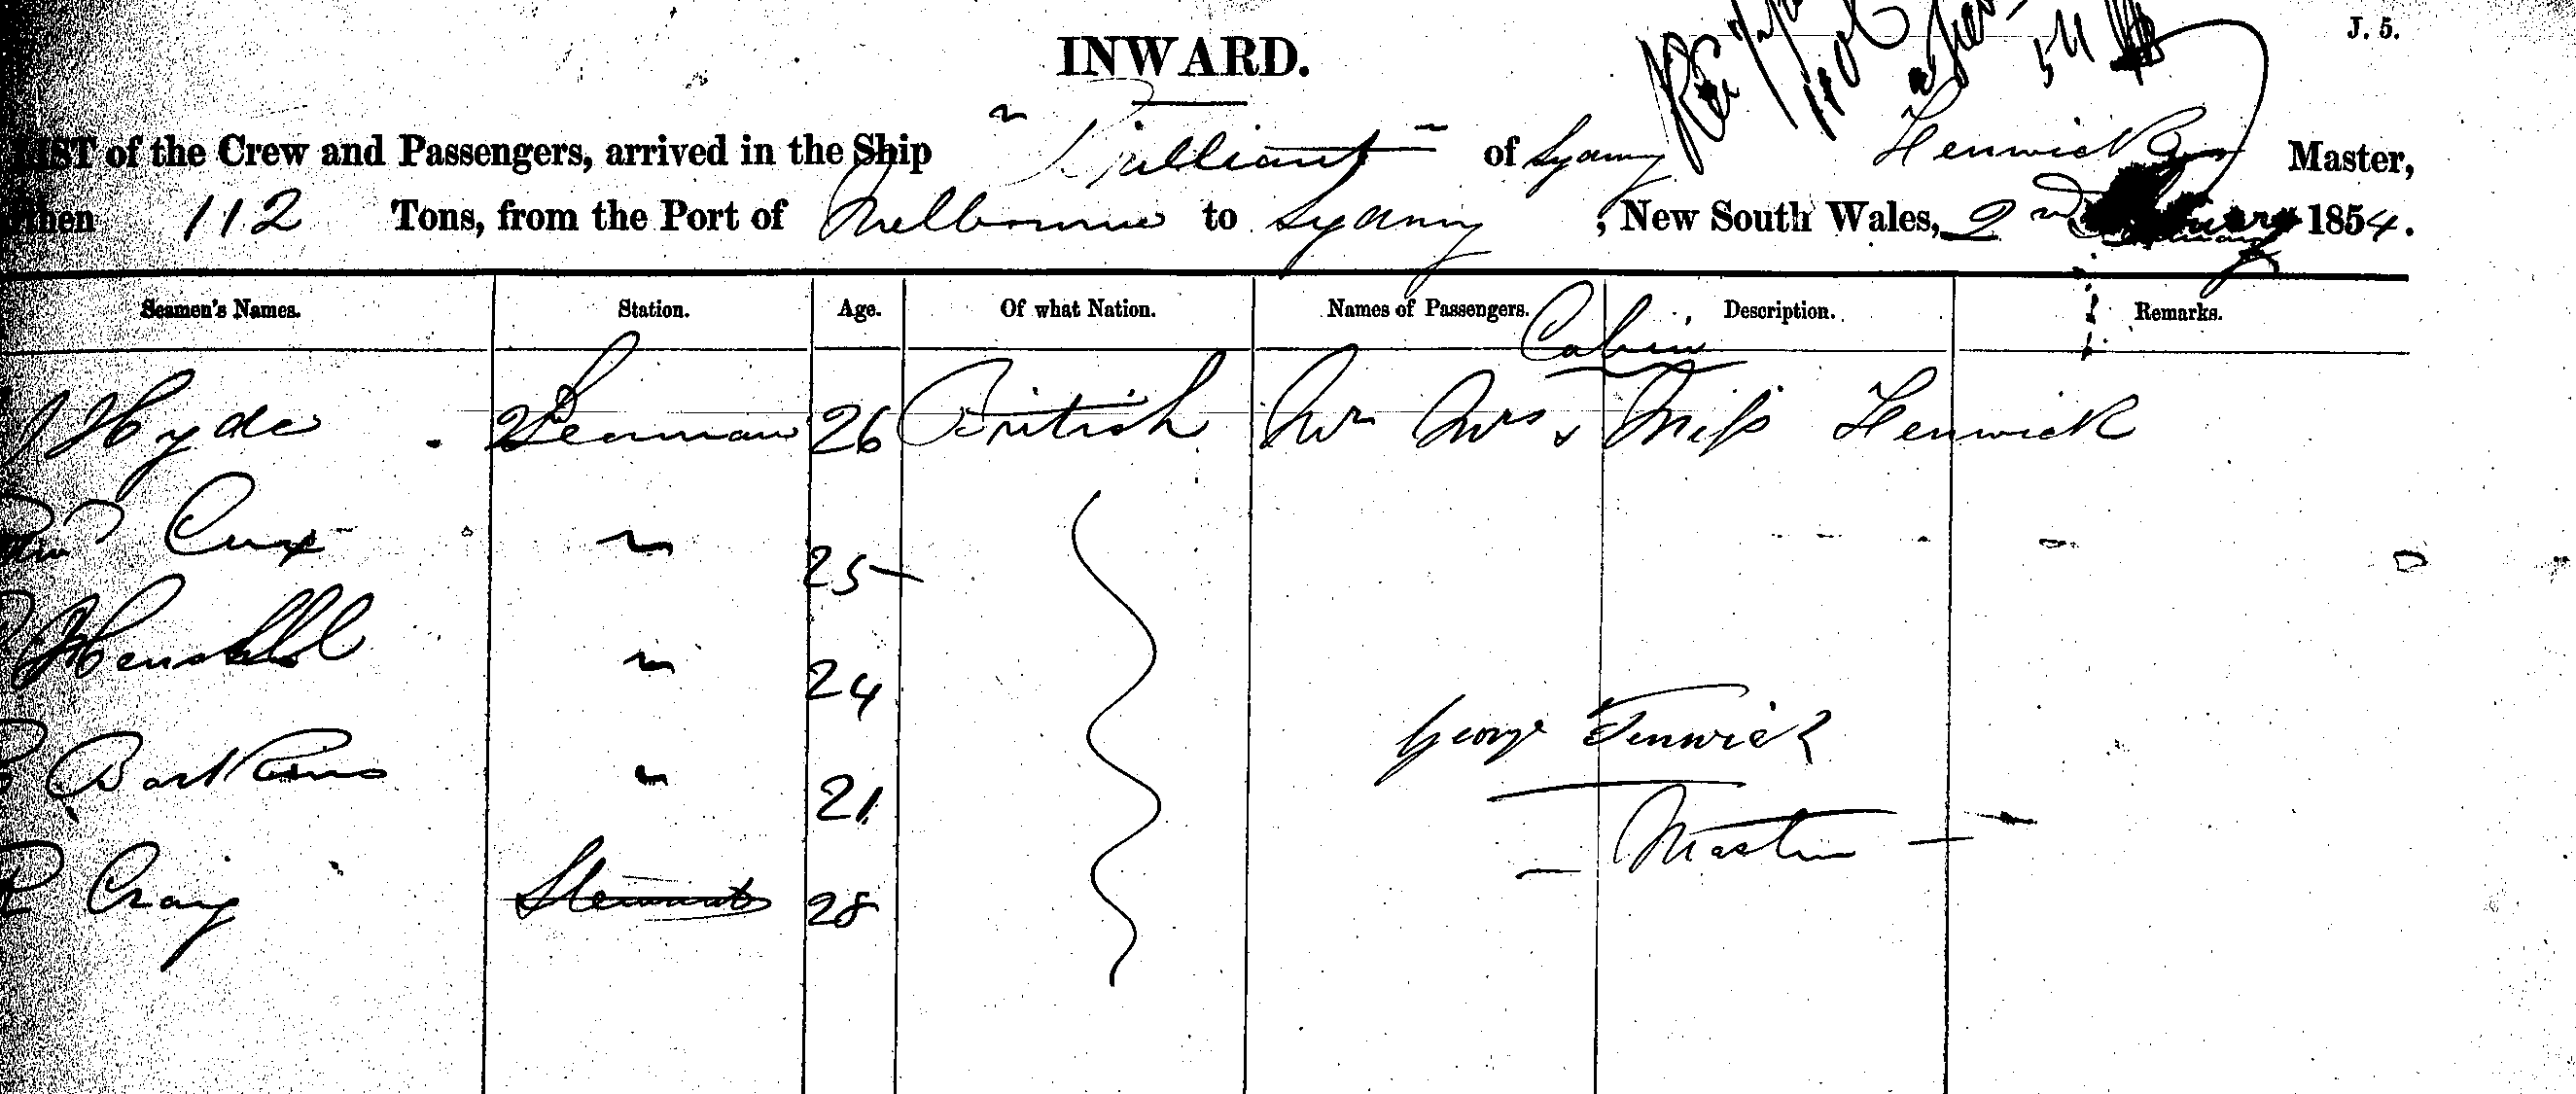 J. 5.
INWARD.
54
LIST of the Crew and Passengers, arrived in the Ship " Brilliant " of Sydney Fenwick Master,
Burthen 112 Tons, from the Port of Melbourne to Sydney , New South Wales, 2nd 1854.
Seamen's Names. Station. Age. Of what Nation. Names of Passengers. Description. Remarks.
Cabin
Hyde Seaman 26 British Mr Mrs & Miss Fenwick
Cux " 25
" 24
" 21
George Fenwick
Craig Steward 28
Master